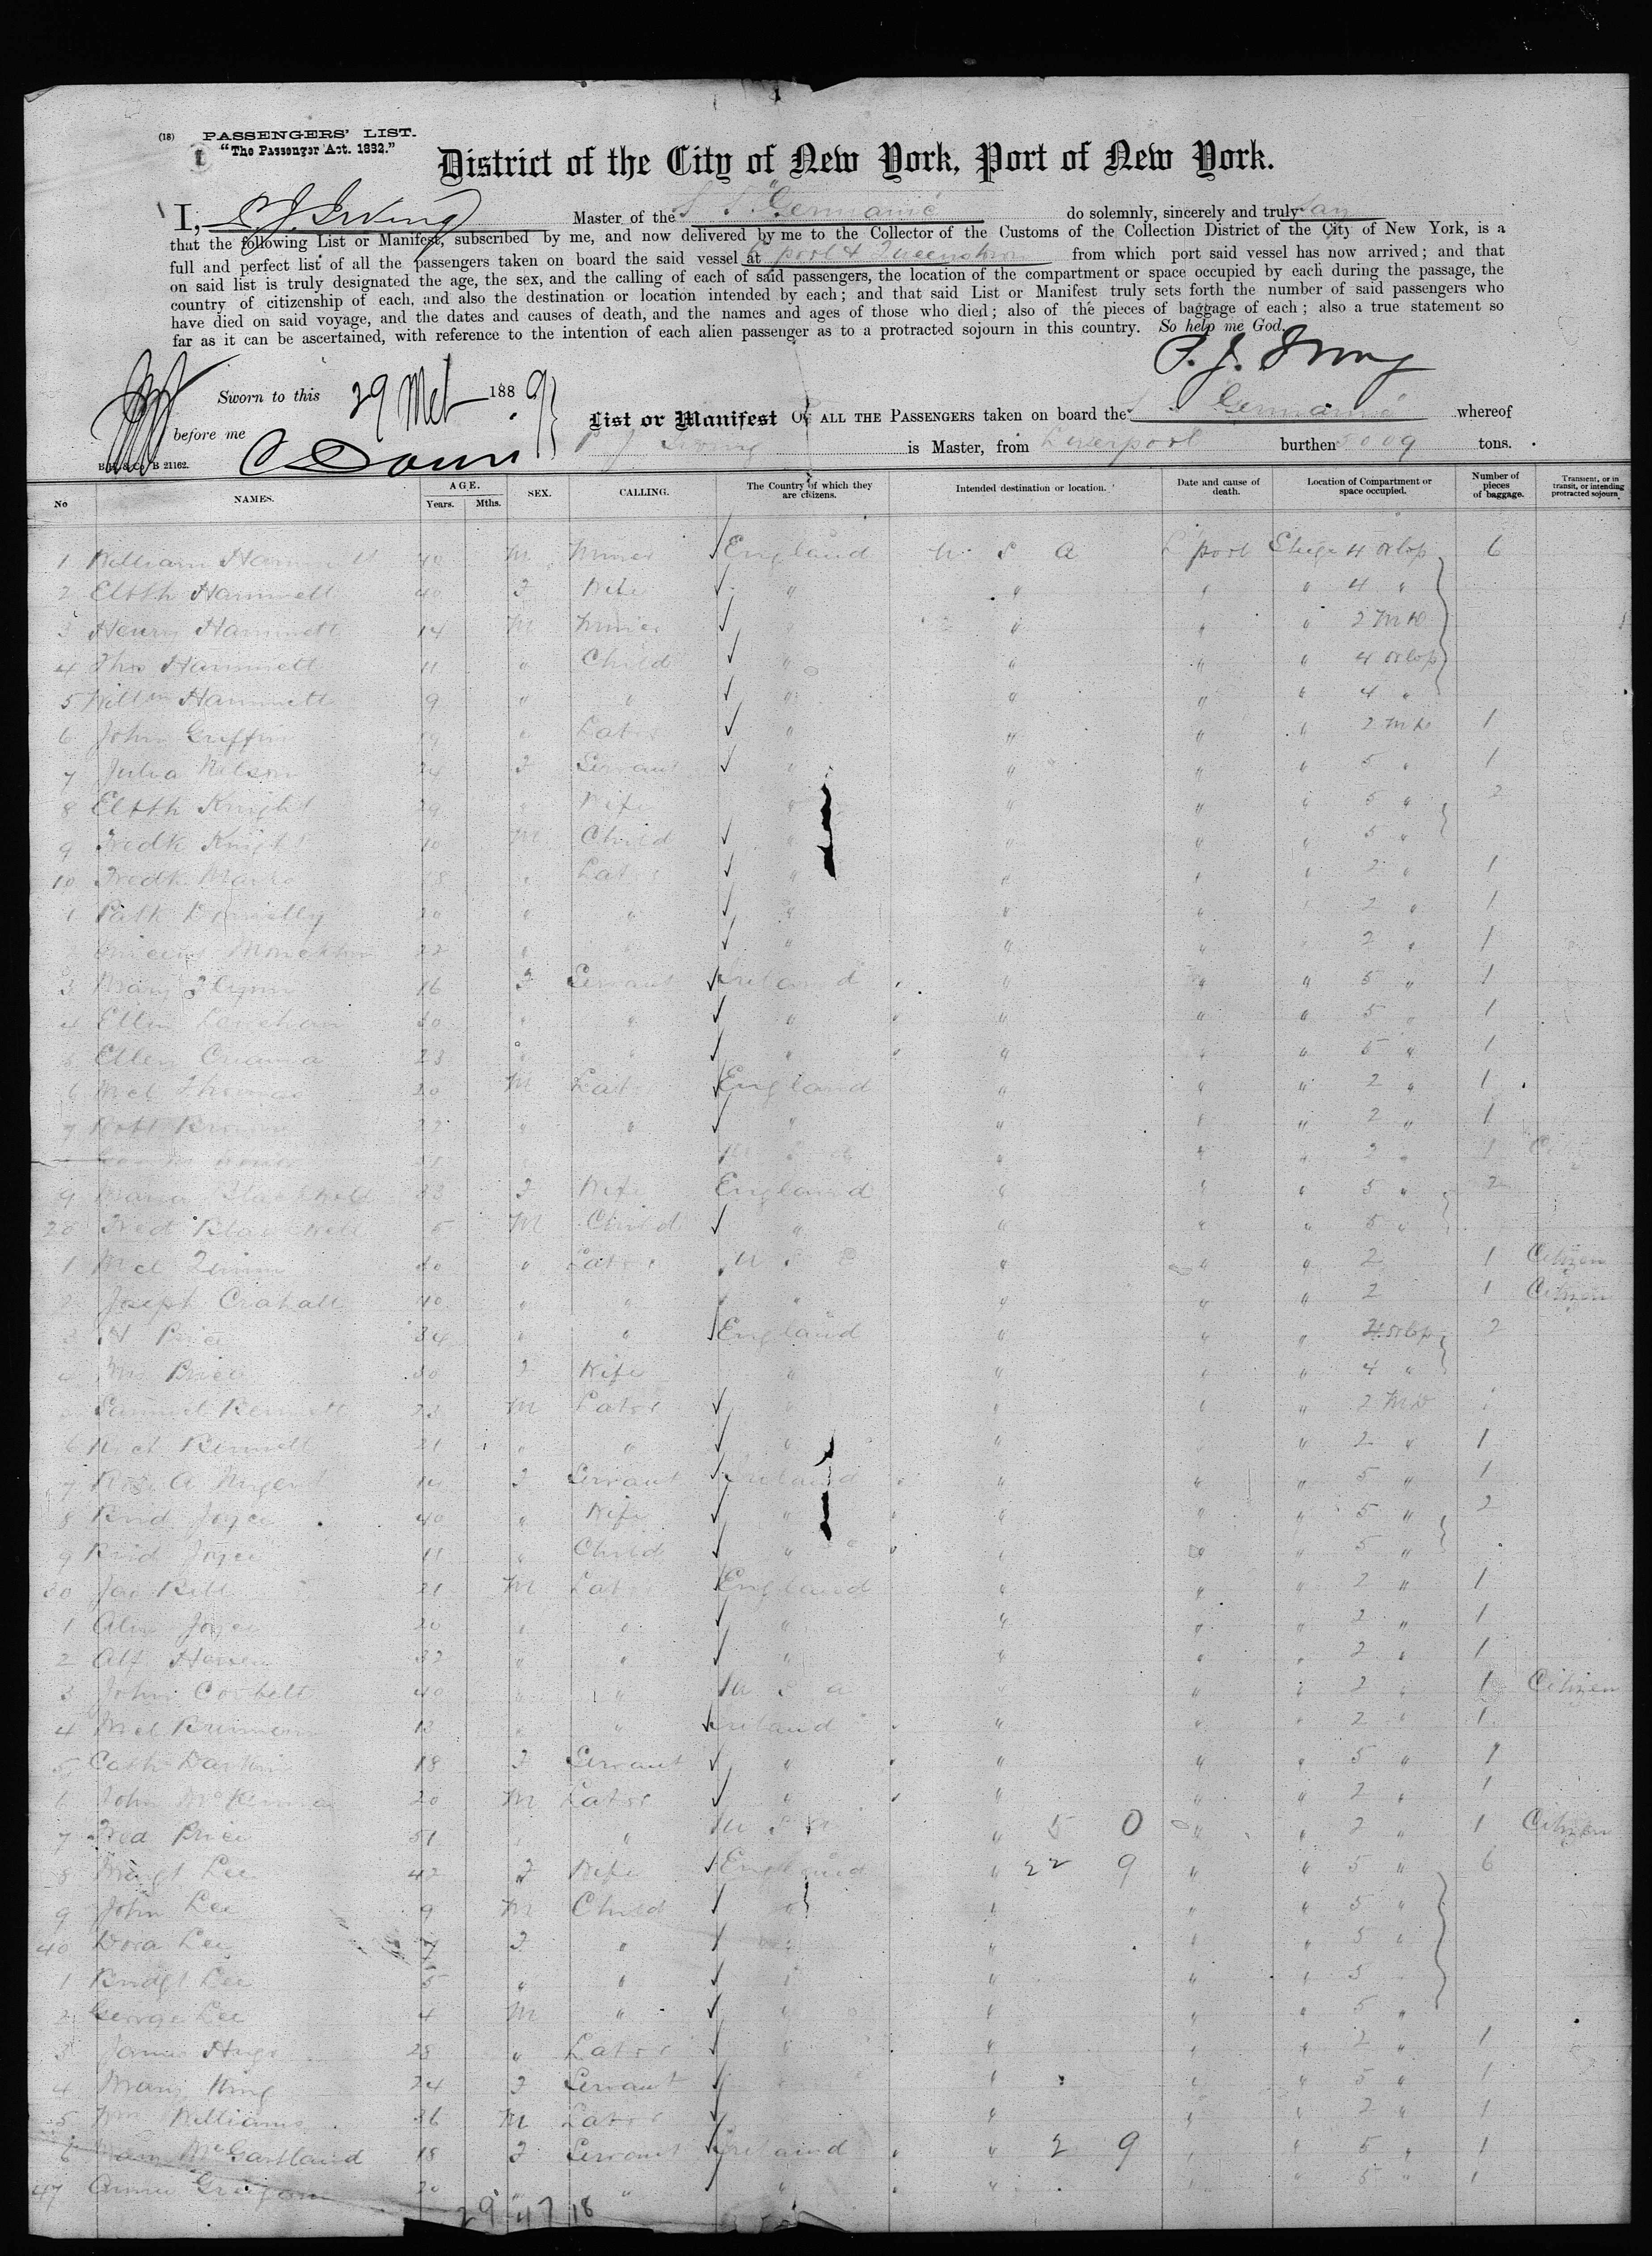 (18) PASSENGERS' LIST.
"The Passenger Act. 1882."
District of the City of New York, Port of New York.
I, P J Irving Master of the S S "Germanic do solemnly, sincerely and truly Say
that the following List or Manifest, subscribed by me, and now delivered by me to the Collector of the Customs of the Collection District of the City of New York, is a
full and perfect list of all the passengers taken on board the said vessel at L'pool & Queenstown from which port said vessel has now arrived; and that
on said list is truly designated the age, the sex, and the calling of each of said passengers, the location of the compartment or space occupied by each during the passage, the
country of citizenship of each, and also the destination or location intended by each; and that said List or Manifest truly sets forth the number of said passengers who
have died on said voyage, and the dates and causes of death, and the names and ages of those who died; also of the pieces of baggage of each; also a true statement so
far as it can be ascertained, with reference to the intention of each alien passenger as to a protracted sojourn in this country. So help me God.
P. J. Irving
Sworn to this 29 Mch 1889
before me
B 21162.
List or Manifest OF ALL THE PASSENGERS taken on board the S S Germanic whereof
P J Irving is Master, from Liverpool burthen 5009 tons.
No NAMES. AGE. Years. Mths. SEX. CALLING. The Country of which they are citizens. Intended destination or location. Date and cause of death. Location of Compartment or space occupied. Number of pieces of baggage. Transient, or in transit, or intending protracted sojourn
1 William Hammett 40 M Miner England U S A L'pool Stge 4 orlop 6
2 Elbth Hammett 40 F Wife " " " " 4 "
3 Henry Hammett 14 M Miner " " " " 2 M D
4 Thos Hammett 11 " Child " " " " 4 orlop
5 Willm Hammett 9 " " " " " " 4 "
6 John Griffin 19 " Labr " " " " 2 M D 1
7 Julia Nelson 24 F Servant " " " " 5 " 1
8 Elbth Knight 29 " Wife " " " " 5 " 2
9 Fredk Knight 10 M Child " " " " 5 "
10 Fredk 18 " Labr " " " " 2 " 1
1 Patk Donnelly 20 " " " " " " 2 " 1
2 22 " " " " " " 2 " 1
3 Mary Flynn 16 F Servant Ireland " " " 5 " 1
4 Ellen 30 " " " " " " 5 " 1
5 Ellen 23 " " " " " " 5 " 1
6 Mcl Thomas 20 M Labr England " " " 2 " 1
7 Robt Brown 22 " " " " " " 2 " 1
U S A " " " 2 " 1 Citizen
9 Maria Blackwell 33 F Wife England " " " 5 " 2
20 Fred Blackwell 5 M Child " " " " 5 "
1 Mcl 30 " Labr U S A " " " 2 1 Citizen
2 Joseph 40 " " " " " " 2 1 Citizen
3 H Price 34 " " England " " " 4 orlop 2
4 Mrs Price 30 F Wife " " " " 4 "
5 Samuel Bennett 23 M Labr " " " " 2 M D 1
6 Bennett 21 " " " " " " 2 " 1
7 Rose A Nugent 14 F Servant Ireland " " " 5 " 1
8 Brid Joyce 40 " Wife " " " " 5 " 2
9 Brid Joyce 11 " Child " " " " 5 "
30 Jas Bell 21 M Labr England " " " 2 " 1
1 Joyce 20 " " " " " " 2 " 1
2 Alf 32 " " " " " " 2 " 1
3 John Corbett 40 " " U S A " " " 2 " 1 Citizen
4 Mcl 13 " " Ireland " " " 2 " 1
5 Cath 18 F Servant " " " " 5 " 1
6 John McKenna 20 M Labr " " " " 2 " 1
7 Fred Price 51 " " U S A " 5 0 " " 2 " 1 Citizen
8 Margt Lee 42 F Wife England " 22 9 " " 5 " 6
9 John Lee 9 M Child " " " " 5 "
40 Dora Lee 7 F " " " " " 5 "
1 Bridgt Lee 5 " " " " " " 5 "
2 George Lee 4 M " " " " " 5 "
3 James 28 " Labr " " " " 2 " 1
4 Mary King 24 F Servant " " " 5 " 1
5 Wm Williams 26 M Labr " " " 2 " 1
6 Mary McGartland 18 F Servant Ireland " 2 9 " " 5 " 1
47 Annie 20 " " " " " " 5 " 1
29 47 18